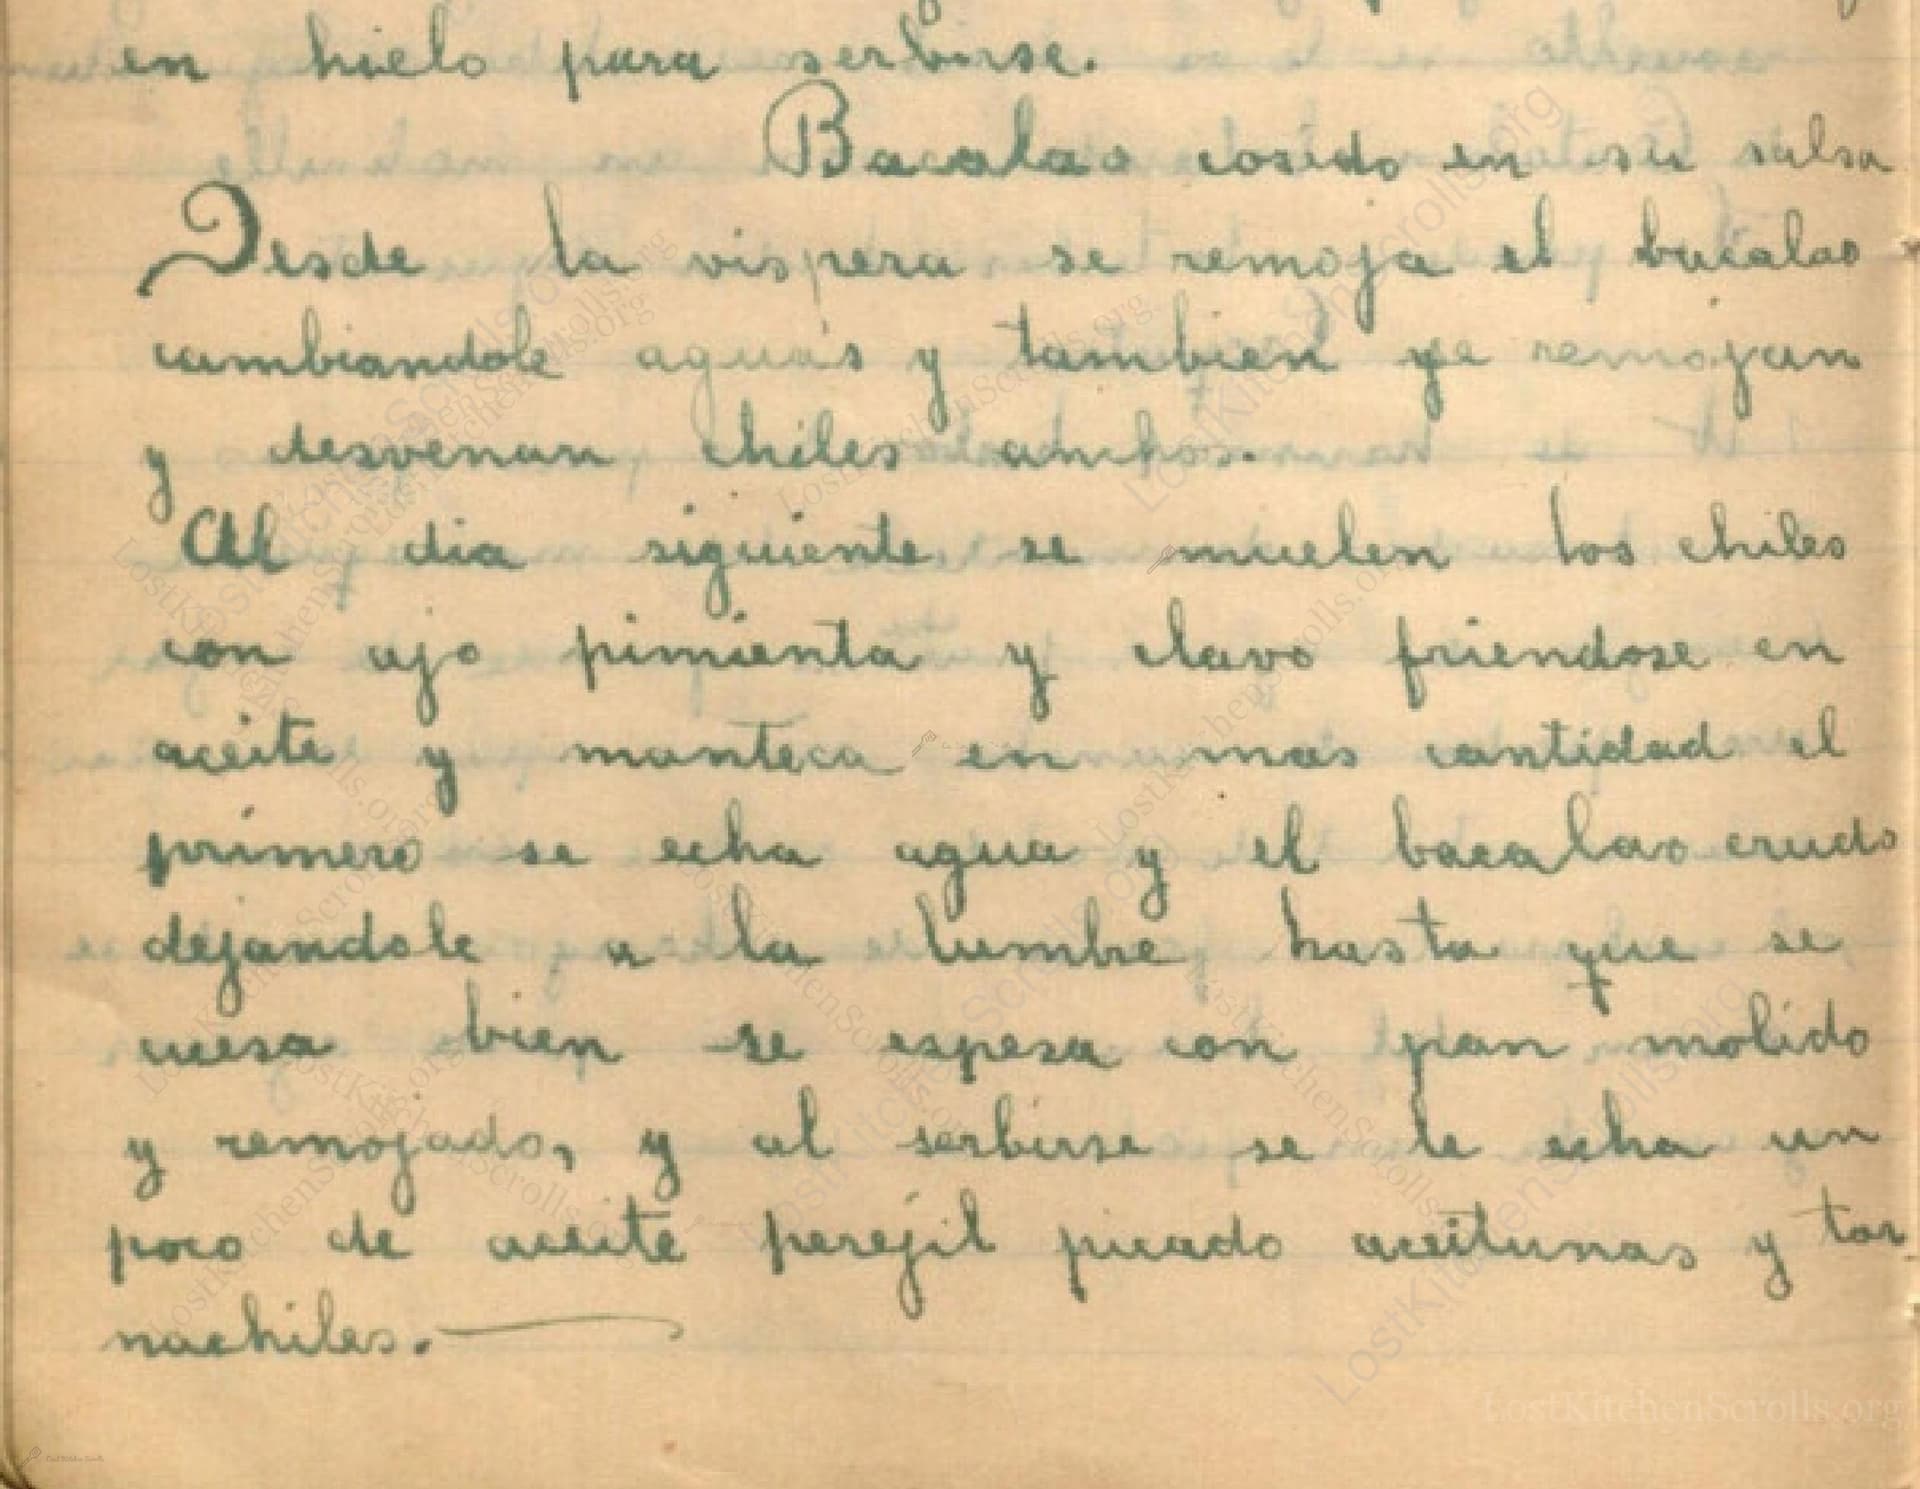 en hielo para serbirse.
Bacalao cosido en su salsa
Desde la vispera se remoja el bacalao
cambiandole aguas y tambien se remojan
y desvenan chiles anchos.
Al dia siguiente se muelen los chiles
con ajo pimienta y clavo friendose en
aceite y manteca en mas cantidad el
primero se echa agua y el bacalao crudo
dejandole a la lumbre hasta que se
cuesa bien se espesa con pan molido
y remojado, y al serbirse se le echa un
poco de aceite perejil picado aceitunas y tor
nachiles.
LostKitchenScrolls.org